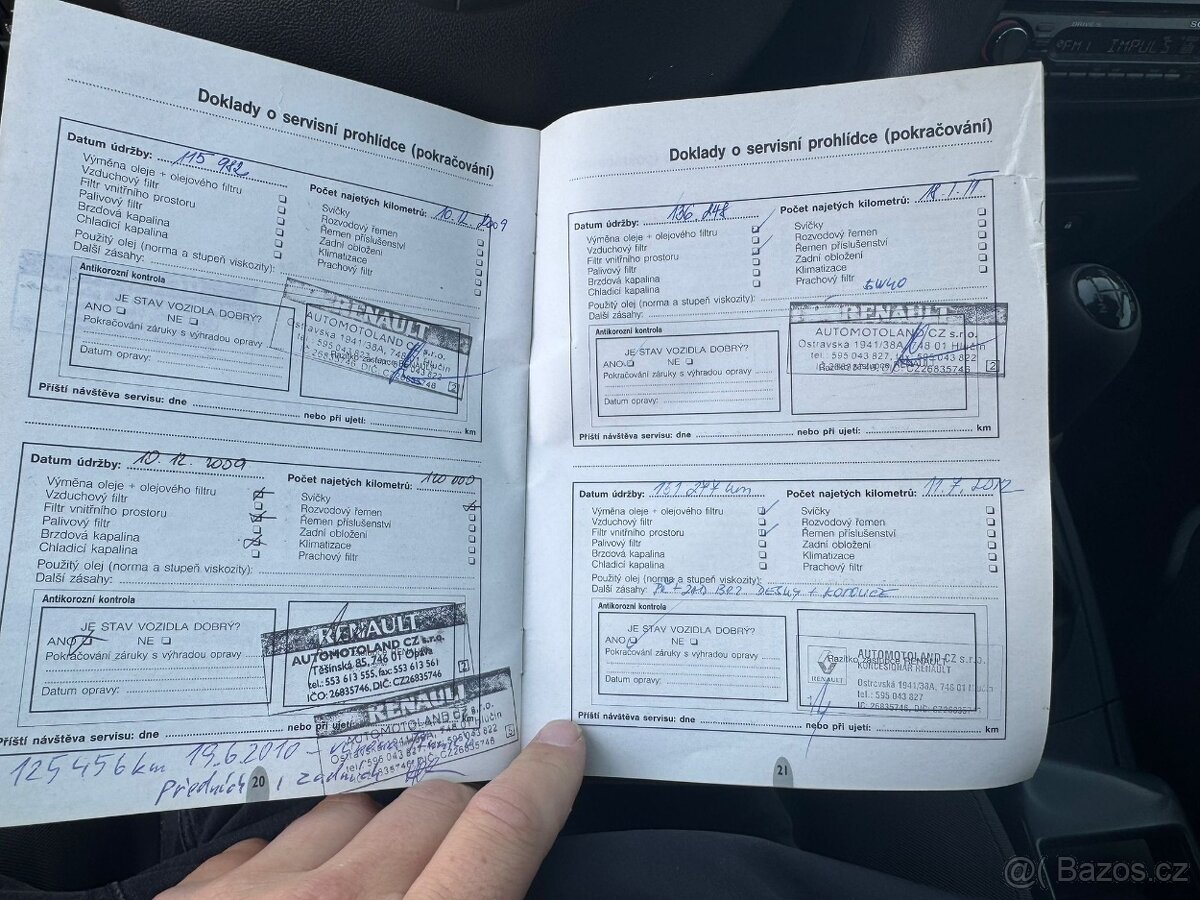 Doklady o servisní prohlídce (pokračování)
Datum údržby: 115 982
Počet najetých kilometrů: 10.12.2009
Výměna oleje + olejového filtru
Vzduchový filtr
Filtr vnitřního prostoru
Palivový filtr
Brzdová kapalina
Chladicí kapalina
Svíčky
Rozvodový řemen
Řemen příslušenství
Zadní obložení
Klimatizace
Prachový filtr
Použitý olej (norma a stupeň viskozity):
Další zásahy:
Antikorozní kontrola
JE STAV VOZIDLA DOBRÝ?
ANO NE
Pokračování záruky s výhradou opravy
Datum opravy:
RENAULT
AUTOMOTOLAND CZ s.r.o.
Ostravská 1941/38A, 748 01 Hlučín
Příští návštěva servisu: dne nebo při ujetí: km
Datum údržby: 10.12.2009
Počet najetých kilometrů: 120 000
Výměna oleje + olejového filtru
Vzduchový filtr
Filtr vnitřního prostoru
Palivový filtr
Brzdová kapalina
Chladicí kapalina
Svíčky
Rozvodový řemen
Řemen příslušenství
Zadní obložení
Klimatizace
Prachový filtr
Použitý olej (norma a stupeň viskozity):
Další zásahy:
Antikorozní kontrola
JE STAV VOZIDLA DOBRÝ?
ANO NE
Pokračování záruky s výhradou opravy
Datum opravy:
RENAULT
AUTOMOTOLAND CZ s.r.o.
Těšínská 85, 746 01 Opava
tel.: 553 613 555, fax: 553 613 561
IČO: 26835746, DIČ: CZ26835746
Příští návštěva servisu: dne nebo při ujetí: km
RENAULT
AUTOMOTOLAND CZ s.r.o.
125456km 19.6.2010
Předních i zadních
20
Doklady o servisní prohlídce (pokračování)
Datum údržby: 136.248
Počet najetých kilometrů:
Výměna oleje + olejového filtru
Vzduchový filtr
Filtr vnitřního prostoru
Palivový filtr
Brzdová kapalina
Chladicí kapalina
Svíčky
Rozvodový řemen
Řemen příslušenství
Zadní obložení
Klimatizace
Prachový filtr
5W40
Použitý olej (norma a stupeň viskozity):
Další zásahy:
Antikorozní kontrola
JE STAV VOZIDLA DOBRÝ?
ANO NE
Pokračování záruky s výhradou opravy
Datum opravy:
RENAULT
AUTOMOTOLAND CZ s.r.o.
Ostravská 1941/38A, 748 01 Hlučín
tel.: 595 043 827, fax: 595 043 822
Příští návštěva servisu: dne nebo při ujetí: km
Datum údržby:
Počet najetých kilometrů: 11.7.2012
Výměna oleje + olejového filtru
Vzduchový filtr
Filtr vnitřního prostoru
Palivový filtr
Brzdová kapalina
Chladicí kapalina
Svíčky
Rozvodový řemen
Řemen příslušenství
Zadní obložení
Klimatizace
Prachový filtr
Použitý olej (norma a stupeň viskozity):
Další zásahy: PŘ + ZAD BRZ. DESKY + KOTOUČE
Antikorozní kontrola
JE STAV VOZIDLA DOBRÝ?
ANO NE
Pokračování záruky s výhradou opravy
Datum opravy:
RENAULT
AUTOMOTOLAND CZ s.r.o.
Razítko zástupce RENAULT
KONCESIONÁŘ RENAULT
Ostravská 1941/38A, 748 01 Hlučín
tel.: 595 043 827
IČ: 26835746, DIČ: CZ26835746
Příští návštěva servisu: dne nebo při ujetí: km
21
FM1 IMPULS
Bazos.cz